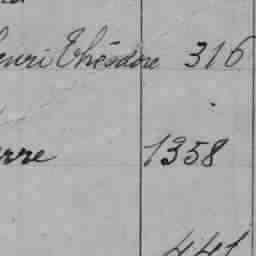 enri Théodore 316
erre 1358
441